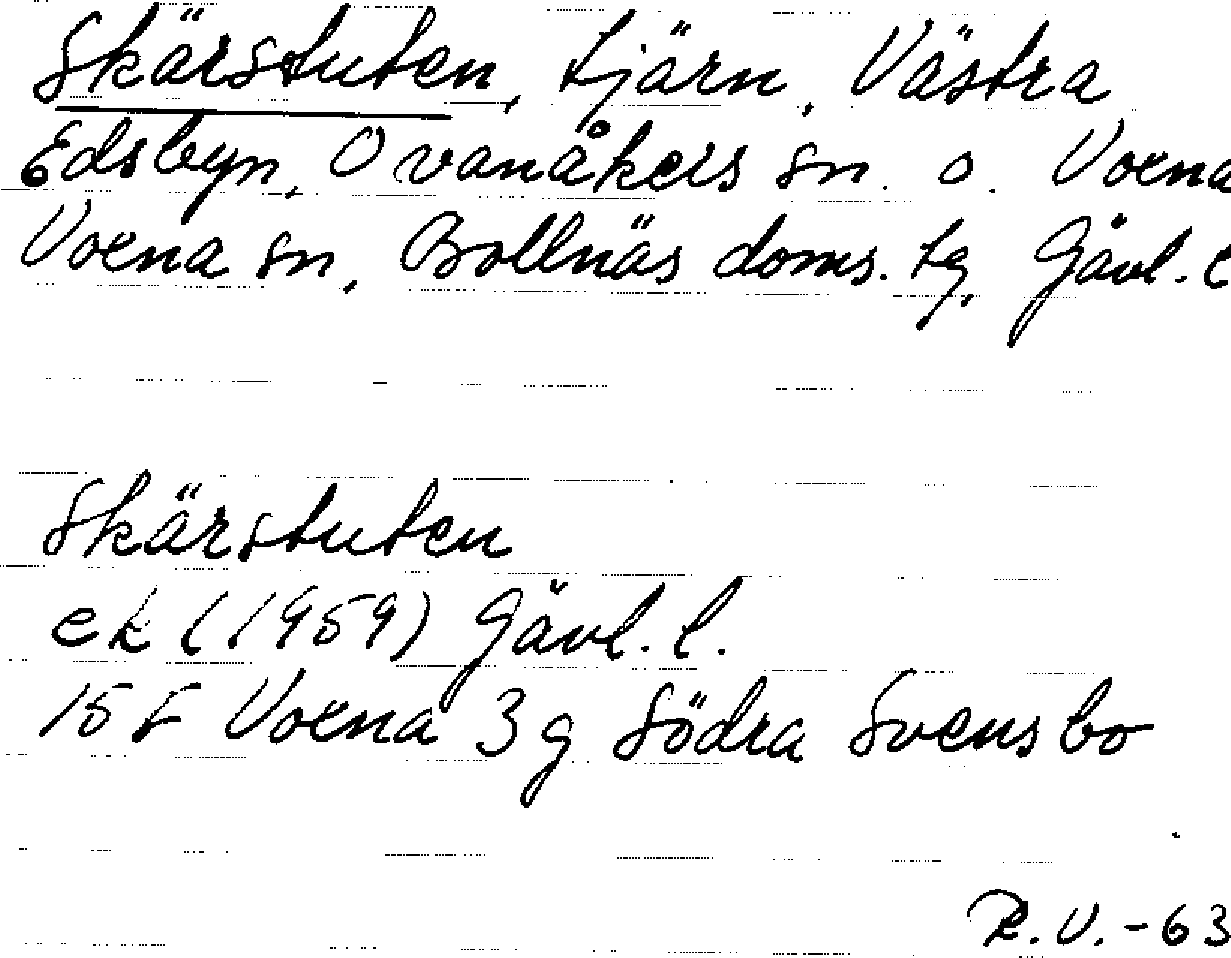 Skärstuten, tjärn, Västra
Edsbyn, Ovanåkers sn. o. Voxna
Voxna sn, Bollnäs doms. tg, Gävl. l
Skärstuten
ek (1959) Gävl. l.
15 F Voxna 3 g Södra Svensbo
R.V. -63